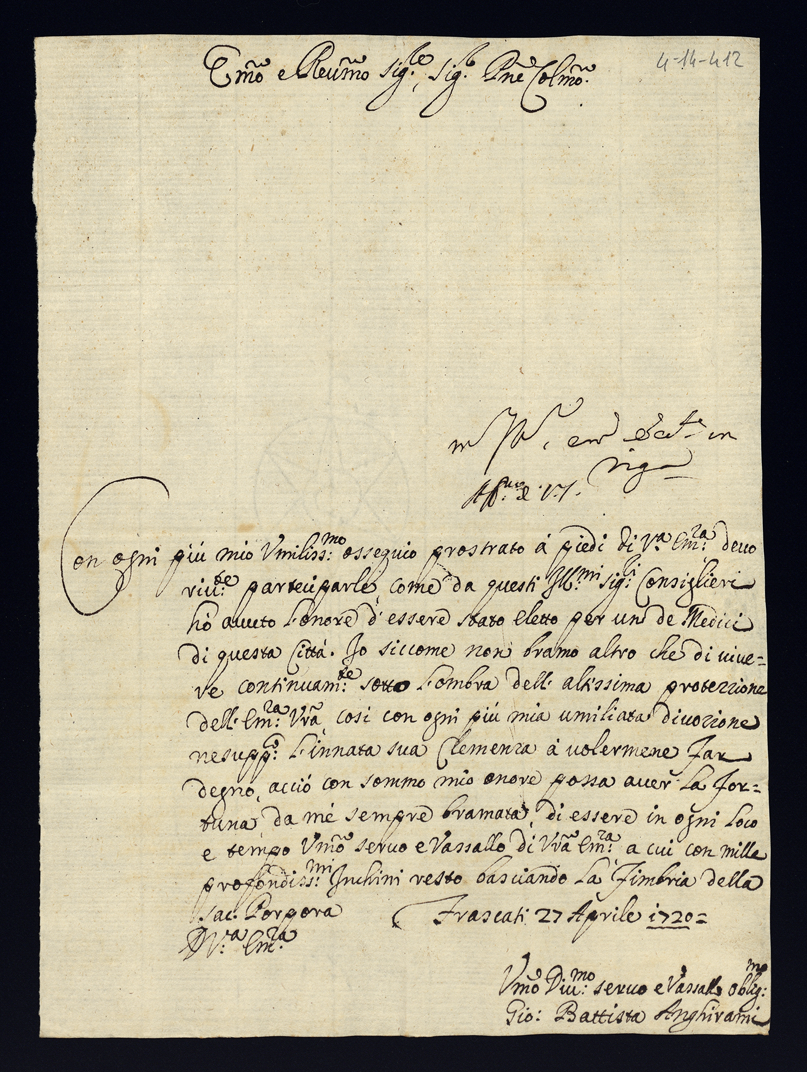 4-14-412
Emo e Reumo Sig.re, Sig.r Pne Colmo.
in
Con ogni piú mio Vmiliss:mo ossequio prostrato á piedi di V.a Em:za deuo
riu:te parteciparle, come da questi Ill:mi Sig:i Consiglieri
hò auuto l'onore d'essere stato eletto per un de Medici
di questa Città. Io siccome non bramo altro che di viue=
re continuam:te sotto l'ombra dell'altissima protezzione
dell'Em:za Vra cosi con ogni piú mia umiliata diuozione
ne supp:co l'innata sua Clemenza á volermene far
degno, acció con sommo mio onore possa auer la for=
tuna da mé sempre bramata, di essere in ogni loco
e tempo Vmo seruo e Vassallo di Vra Em:za a cui con mille
profondiss:mi Inchini resto basciando la fimbria della
Sac: Porpora Frascati 27 Aprile 1720=
D V:a Em:za
Vmo Diu:mo seruo e Vassallo oblig:mo
Gio: Battista Anghirami